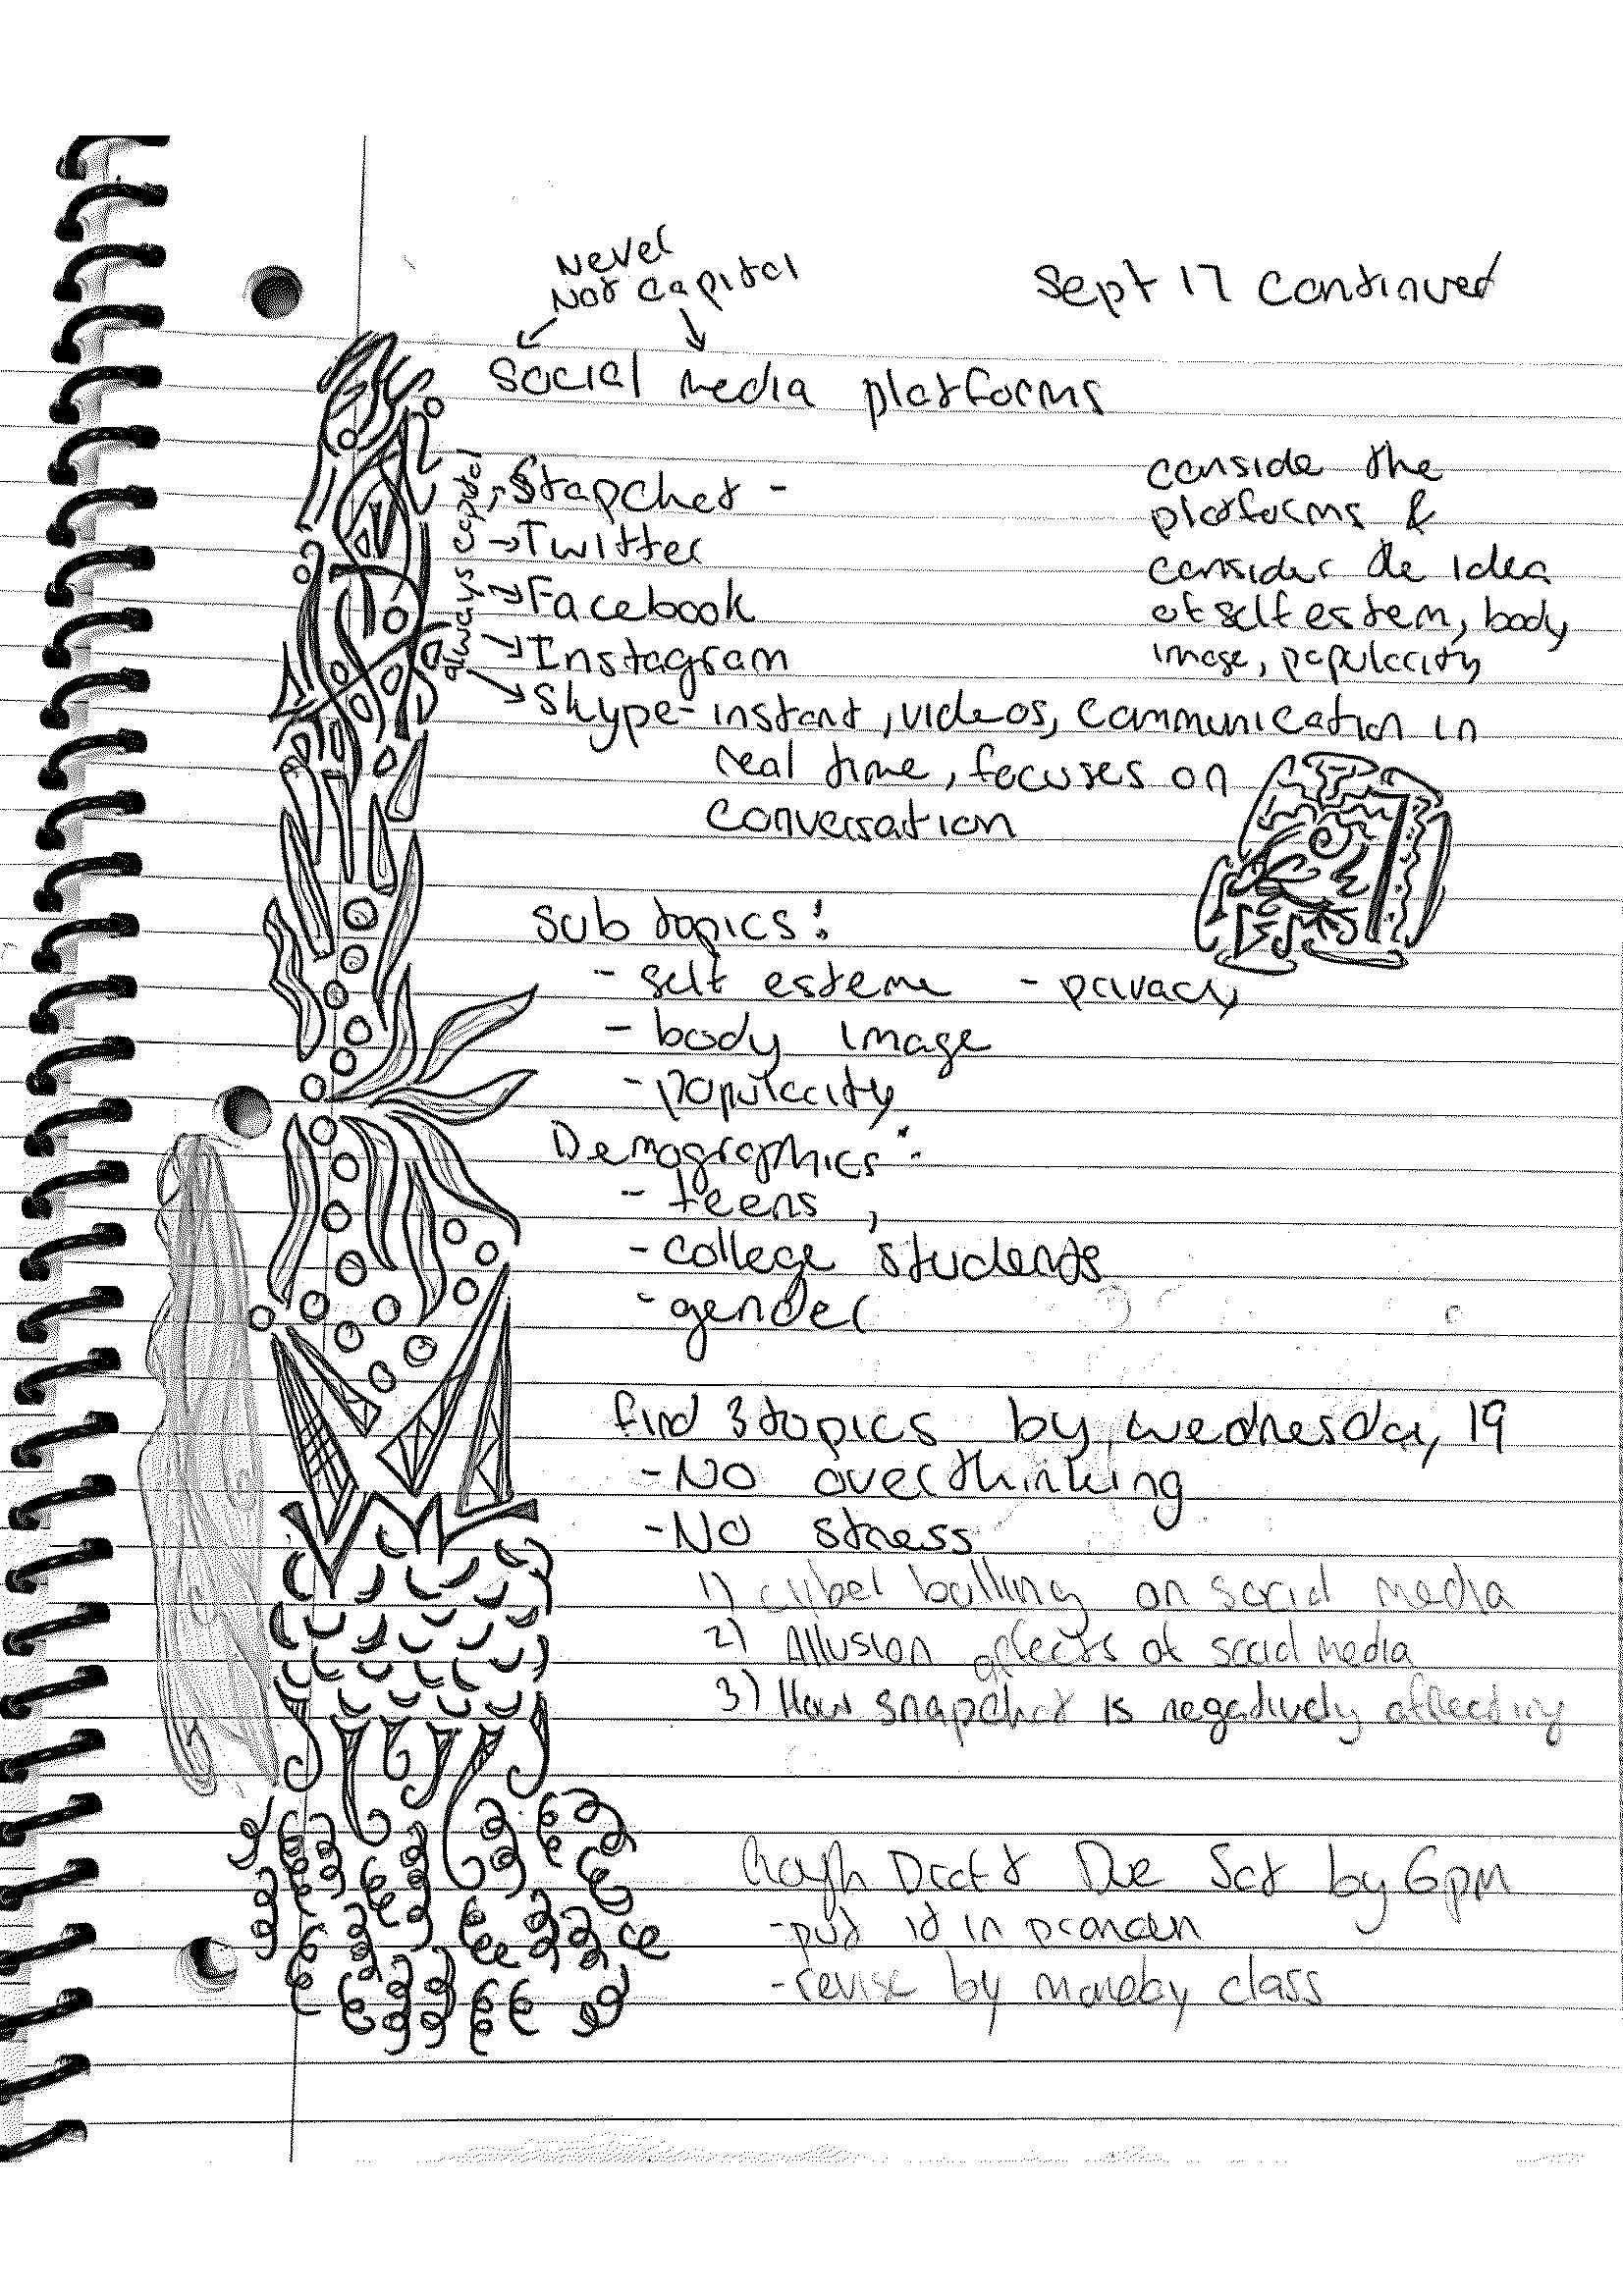 Never
Not Capital
Sept 17 Continued
Social media platforms
always capital
Stapchat -
Twitter
Facebook
Instagram
Skype - instant, videos, communication in
real time, focuses on
conversation
conside the
platforms &
consider the idea
of self estem, body
image, popularity
Sub topics:
- self esteme - privacy
- body image
- popularity
Demographics:
- teens,
- college students
- gender
find 3 topics by wednesday, 19
- No overthinking
- No stress
1) cyber bulling on social media
2) Allusion affects of social media
3) How snapchat is negatively affecting
Rough Draft Due Sat by 6pm
- put it in
- revise by class